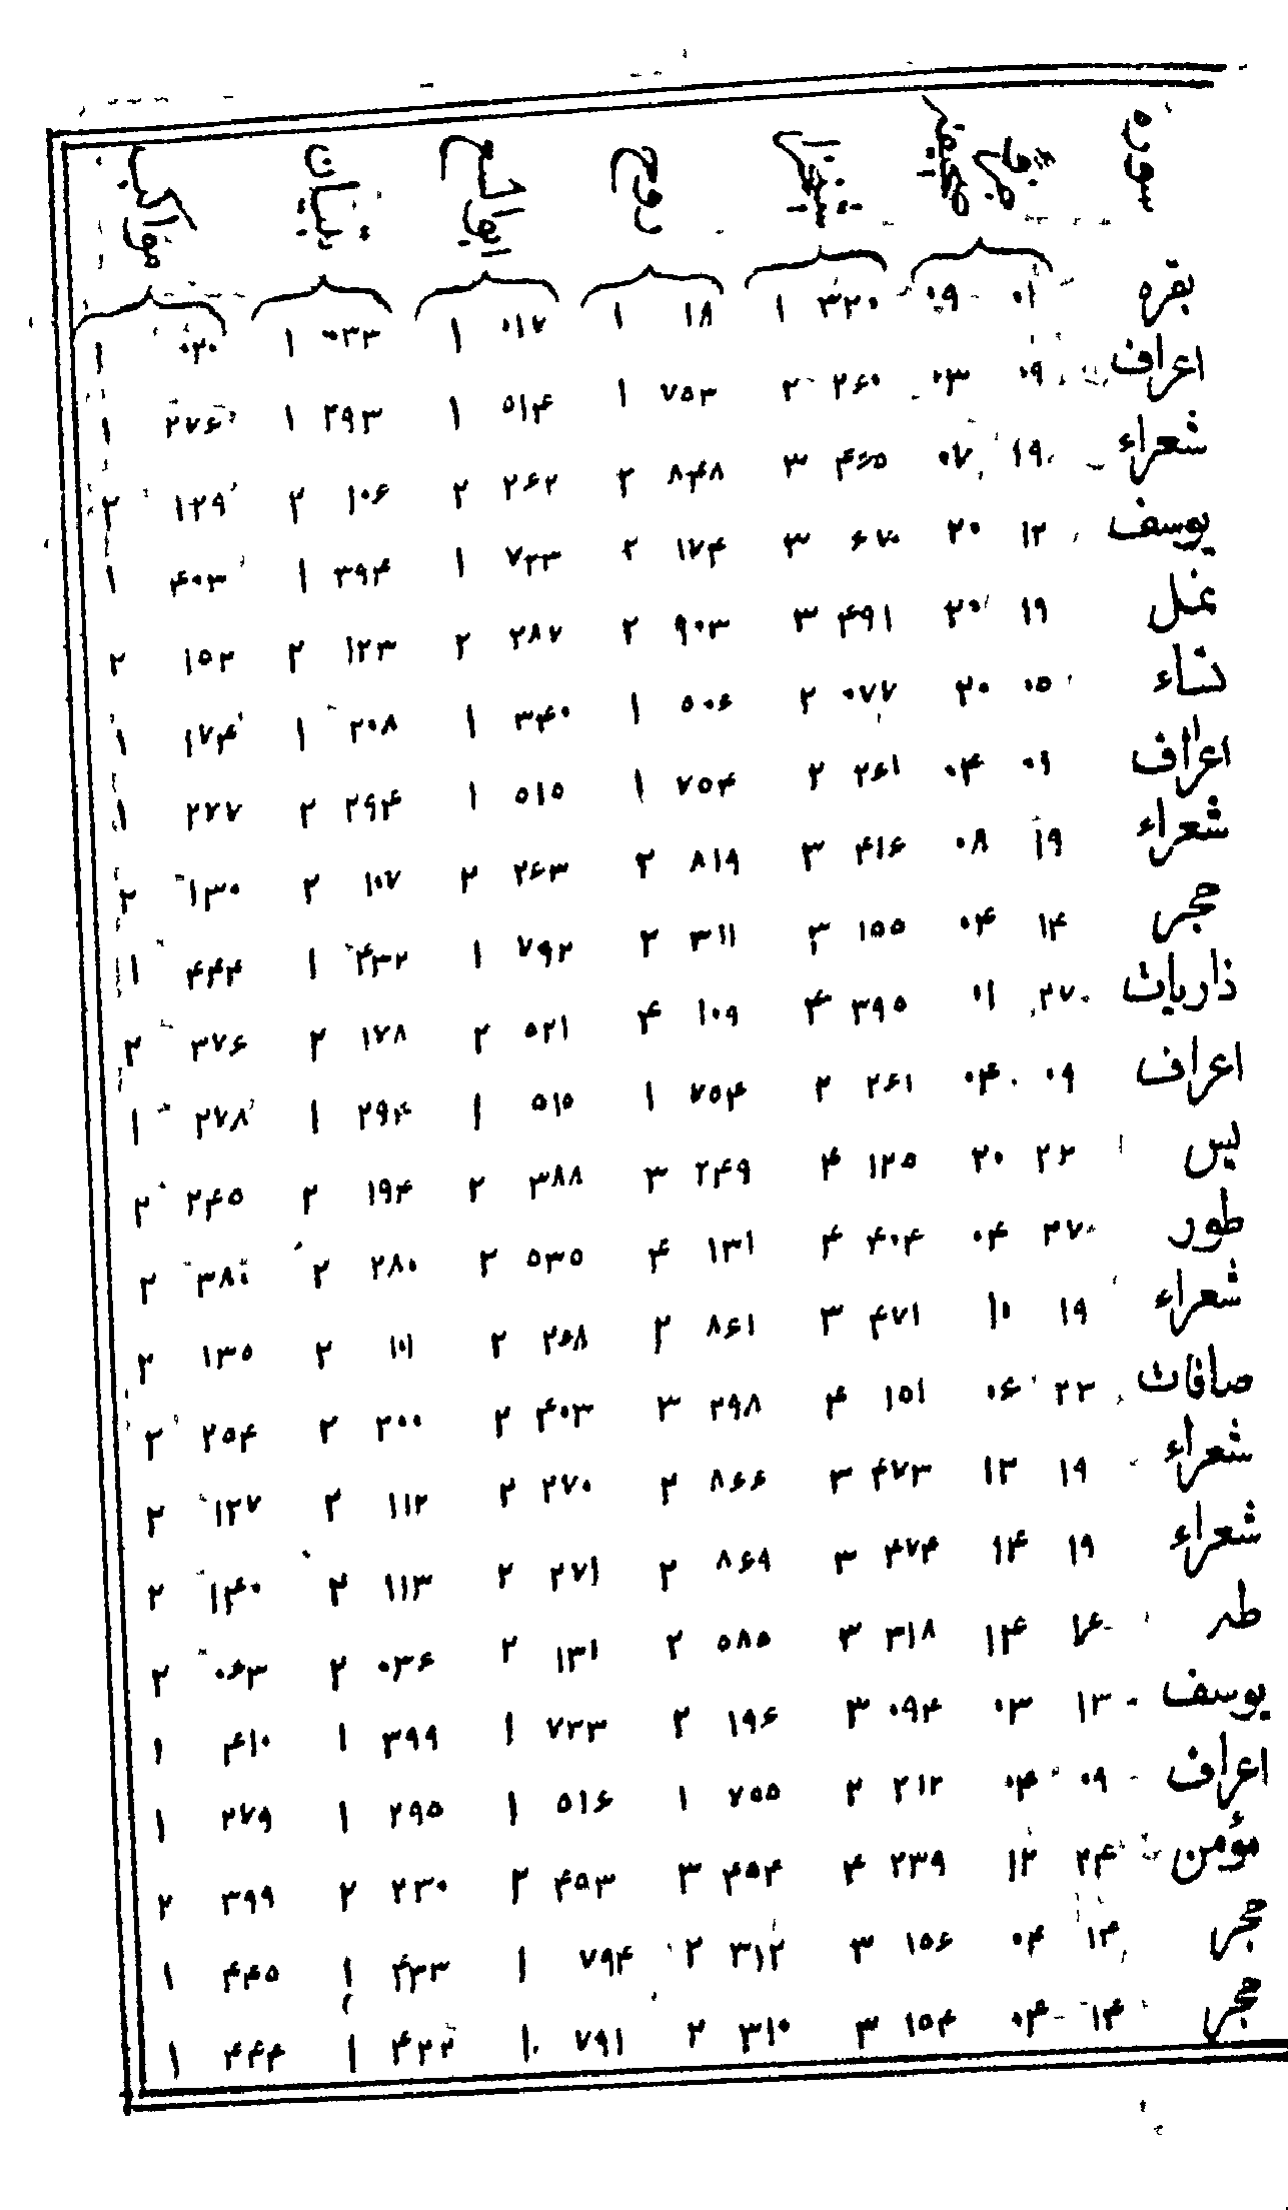 سوره
بقره ۰۱ ۰۹ ۳۲۰ ۱ ۱۸ ۱ ۰۱۷ ۱ ۰۳۳ ۱ ۰۲۰ ۱
اعراف ۰۹ ۰۳ ۲۶۰ ۲ ۷۵۳ ۱ ۵۱۴ ۱ ۲۹۳ ۱ ۲۷۶ ۱
شعراء ۱۹ ۰۷ ۴۶۵ ۳ ۸۴۸ ۲ ۲۶۲ ۲ ۱۰۶ ۲ ۱۲۹ ۲
یوسف ۱۲ ۲۰ ۰۶۷ ۳ ۱۷۴ ۲ ۷۲۳ ۱ ۳۹۴ ۱ ۴۰۳ ۱
نمل ۱۹ ۲۰ ۴۹۱ ۳ ۹۰۳ ۲ ۲۸۷ ۲ ۱۲۳ ۲ ۱۵۲ ۲
نساء ۰۵ ۲۰ ۰۷۷ ۲ ۵۰۶ ۱ ۳۴۰ ۱ ۲۰۸ ۱ ۱۷۴ ۱
اعراف ۰۹ ۰۴ ۲۶۱ ۲ ۷۵۴ ۱ ۵۱۵ ۱ ۲۹۴ ۲ ۲۷۷ ۱
شعراء ۱۹ ۰۸ ۴۱۶ ۳ ۸۱۹ ۲ ۲۶۳ ۲ ۱۰۷ ۲ ۱۳۰ ۲
حجر ۱۴ ۰۴ ۱۵۵ ۳ ۳۱۱ ۲ ۷۹۲ ۱ ۴۳۲ ۱ ۴۴۴ ۱
ذاریات ۲۷ ۰۱ ۳۹۵ ۴ ۱۰۹ ۴ ۵۲۱ ۲ ۱۷۸ ۲ ۳۷۶ ۲
اعراف ۰۹ ۰۴ ۲۶۱ ۲ ۷۵۴ ۱ ۵۱۵ ۱ ۲۹۴ ۱ ۲۷۸ ۱
یس ۲۲ ۲۰ ۱۲۵ ۴ ۲۴۹ ۳ ۳۸۸ ۲ ۱۹۴ ۲ ۲۴۵ ۲
طور ۲۷ ۰۴ ۴۰۴ ۴ ۱۳۱ ۴ ۵۳۵ ۲ ۲۸۰ ۲ ۳۸۰ ۲
شعراء ۱۹ ۱۰ ۴۷۱ ۳ ۸۶۱ ۲ ۲۶۸ ۲ ۱۰۱ ۲ ۱۳۵ ۲
صافات ۲۳ ۰۶ ۱۵۱ ۴ ۲۹۸ ۳ ۴۰۳ ۲ ۲۰۰ ۲ ۲۵۴ ۲
شعراء ۱۹ ۱۳ ۴۷۳ ۳ ۸۶۶ ۲ ۲۷۰ ۲ ۱۱۲ ۲ ۱۲۷ ۲
شعراء ۱۹ ۱۴ ۴۷۴ ۳ ۸۶۹ ۲ ۲۷۱ ۲ ۱۱۳ ۲ ۱۴۰ ۲
طه ۱۶ ۱۴ ۳۱۸ ۳ ۵۸۵ ۲ ۱۳۱ ۲ ۰۳۶ ۲ ۰۶۳ ۲
یوسف ۱۳ ۰۳ ۰۹۴ ۳ ۱۹۶ ۲ ۷۳۳ ۱ ۳۹۹ ۱ ۴۱۰ ۱
اعراف ۰۹ ۰۴ ۲۱۲ ۲ ۷۵۵ ۱ ۵۱۶ ۱ ۲۹۵ ۱ ۲۷۹ ۱
مؤمن ۲۴ ۱۲ ۲۳۹ ۴ ۴۵۴ ۳ ۴۵۳ ۲ ۲۳۰ ۲ ۳۹۹ ۲
حجر ۱۴ ۰۴ ۱۵۶ ۳ ۳۱۲ ۲ ۷۹۴ ۱ ۴۳۳ ۱ ۴۴۵ ۱
حجر ۱۴ ۰۴ ۱۵۴ ۳ ۳۱۰ ۲ ۷۹۱ ۱ ۴۲۲ ۱ ۴۴۴ ۱